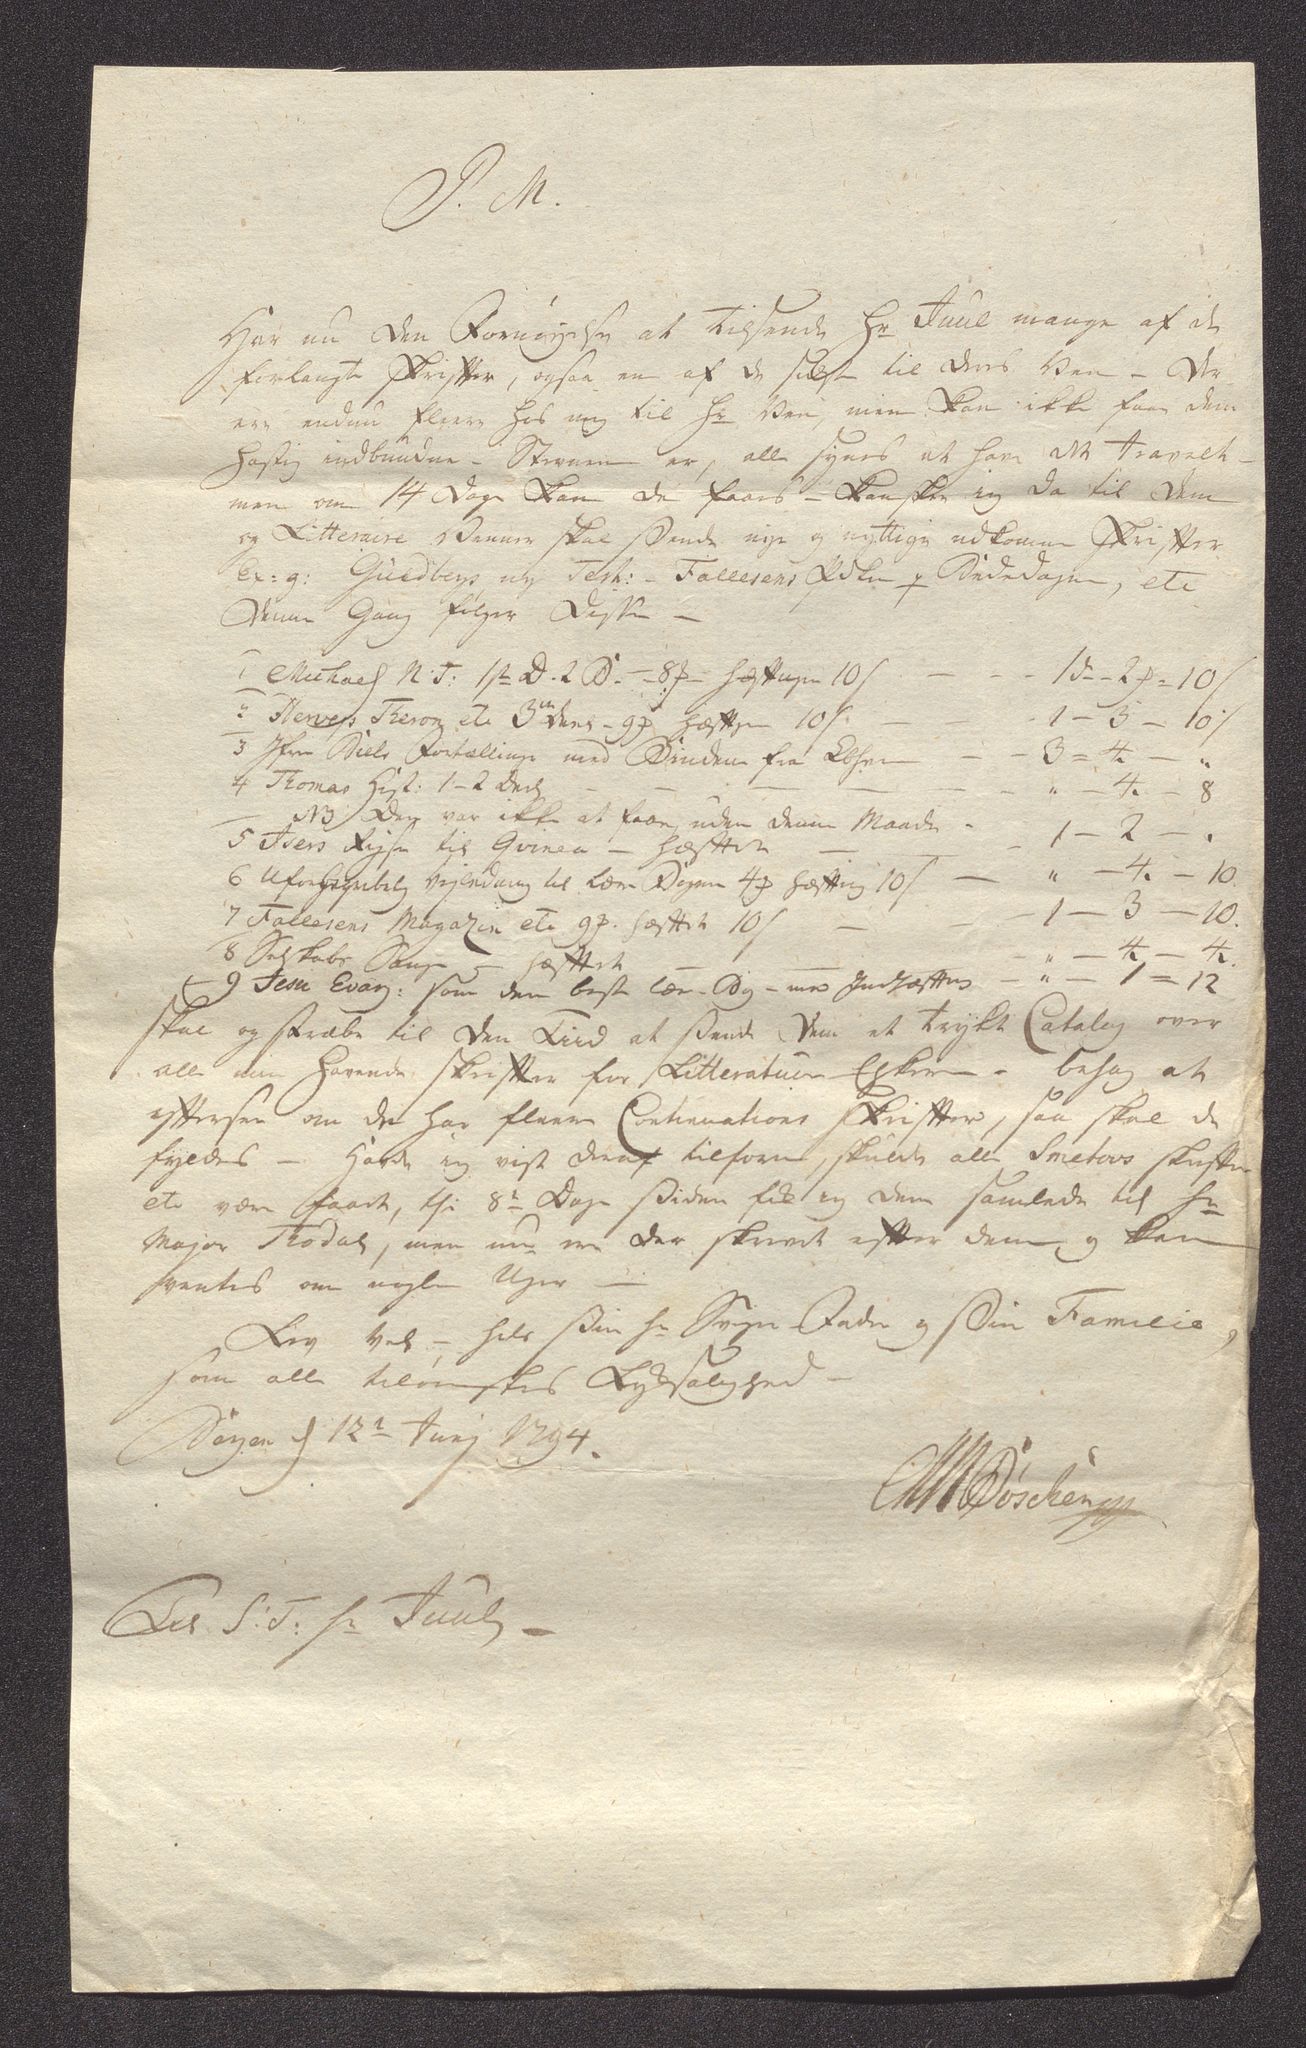 P. M.
Har nu den Fornøyelse at tilsende Hr Juul mange af de
forlangte Skrifter, ogsaa en af de til deres Ven - Der
ere endnu fleere hos mig til Hr Ven, men kan ikke faae dem
hastig indbundne - er, alle synes at have det travelt -
men om 14 Dage kan de faaes - kanskee jeg da til dem
og Litteraire Venner skal sende nye og nyttige udkomne Skrifter
Ex: g: Guldbergs ny Test: - Fallesens Bededagen, etc
denne Gang følger disse -
1 Michael N: T: 1ste D. 2 B. - 8 10 s - - - 1 d - 2 - 10 s
2 Herveys Theron etc 3 deel - 10 s - - 1 - 3 - 10 s
3 Jfr Biels Fortællinger med Bindene fra Kbhvn - - 3 = 4 - "
4 Thomas Hist: 1 - 2 Deel - - - - " - 4 - 8
NB Den var ikke at faae uden denne Maade -
5 Iserts Reyse til Guinea - hæfftet - - 1 - 2 - "
6 Uforgribelig Veyledning til Lære Bogen 10 s - " - 4 - 10
7 Fallesens Magazin etc hæfftet 10 s - - 1 - 3 - 10.
8 Selskabs Sange - hæfftet - - " - 4 - 4.
9 Jesu Evang: som den beste lære Bog - med Indhæfftes - " - 1 = 12
skal og stræbe til den Tiid at sende Dem et trykt Catalog over
alle mine havende Skrifter for Litteratuur Elskere - behag at
efftersee om de har fleere Continuations Skriffter, saa skal de
fyldes - Havde jeg vist deraf tilforn, skulde alle Smetovs skrifter
etc være faaet, thi 8te Dage siden fik jeg dem samlede til Hr
Major Trodal, men nu er der skrevet effter dem, og kan
ventes om nogle Uger -
Lev vel - hils Din Hr Sviger Fader og Din Familie,
som alle tilønskes Lyksalighed -
Bergen d 12te Junij 1794.
Büsching
Til S: T: Hr Juul -